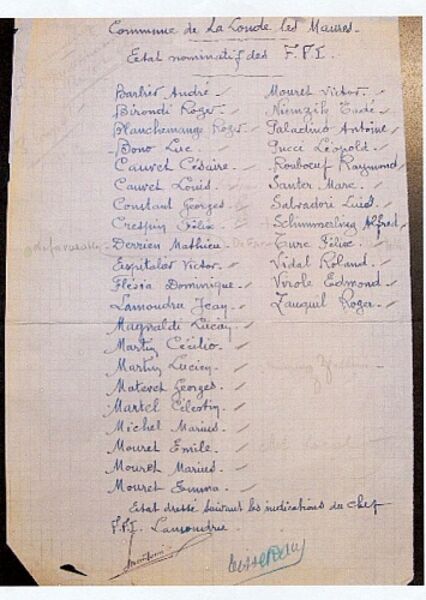 Commune de La Londe les Maures.
Etat nominatif des F.F.I.
Barbier André.
Birondi Roger.
Blanchemange Roger.
Bono Luc.
Cauvet Césaire.
Cauvet Louis.
Constant Georges
Crespin Félix.
Derrien Mathieu.
Espitalier Victor.
Flésia Dominique.
Lamoudru Jean
Magnaldi Lucay
Martin Cécilio.
Martin Lucien.
Matevet Georges.
Martel Célestin.
Michel Marius.
Mouret Emile.
Mouret Marius.
Mouret Emma.
Mouret Victor.
Paladino Antoine
Pucci Léopold.
Rouboeuf Raymond
Santer Marc.
Salvadori Luigi.
Schimmerling Alfred
Ture Félix.
Vidal Roland.
Virole Edmond
Zauquil Roger.
Etat dressé suivant les indications du chef
F.F.I.